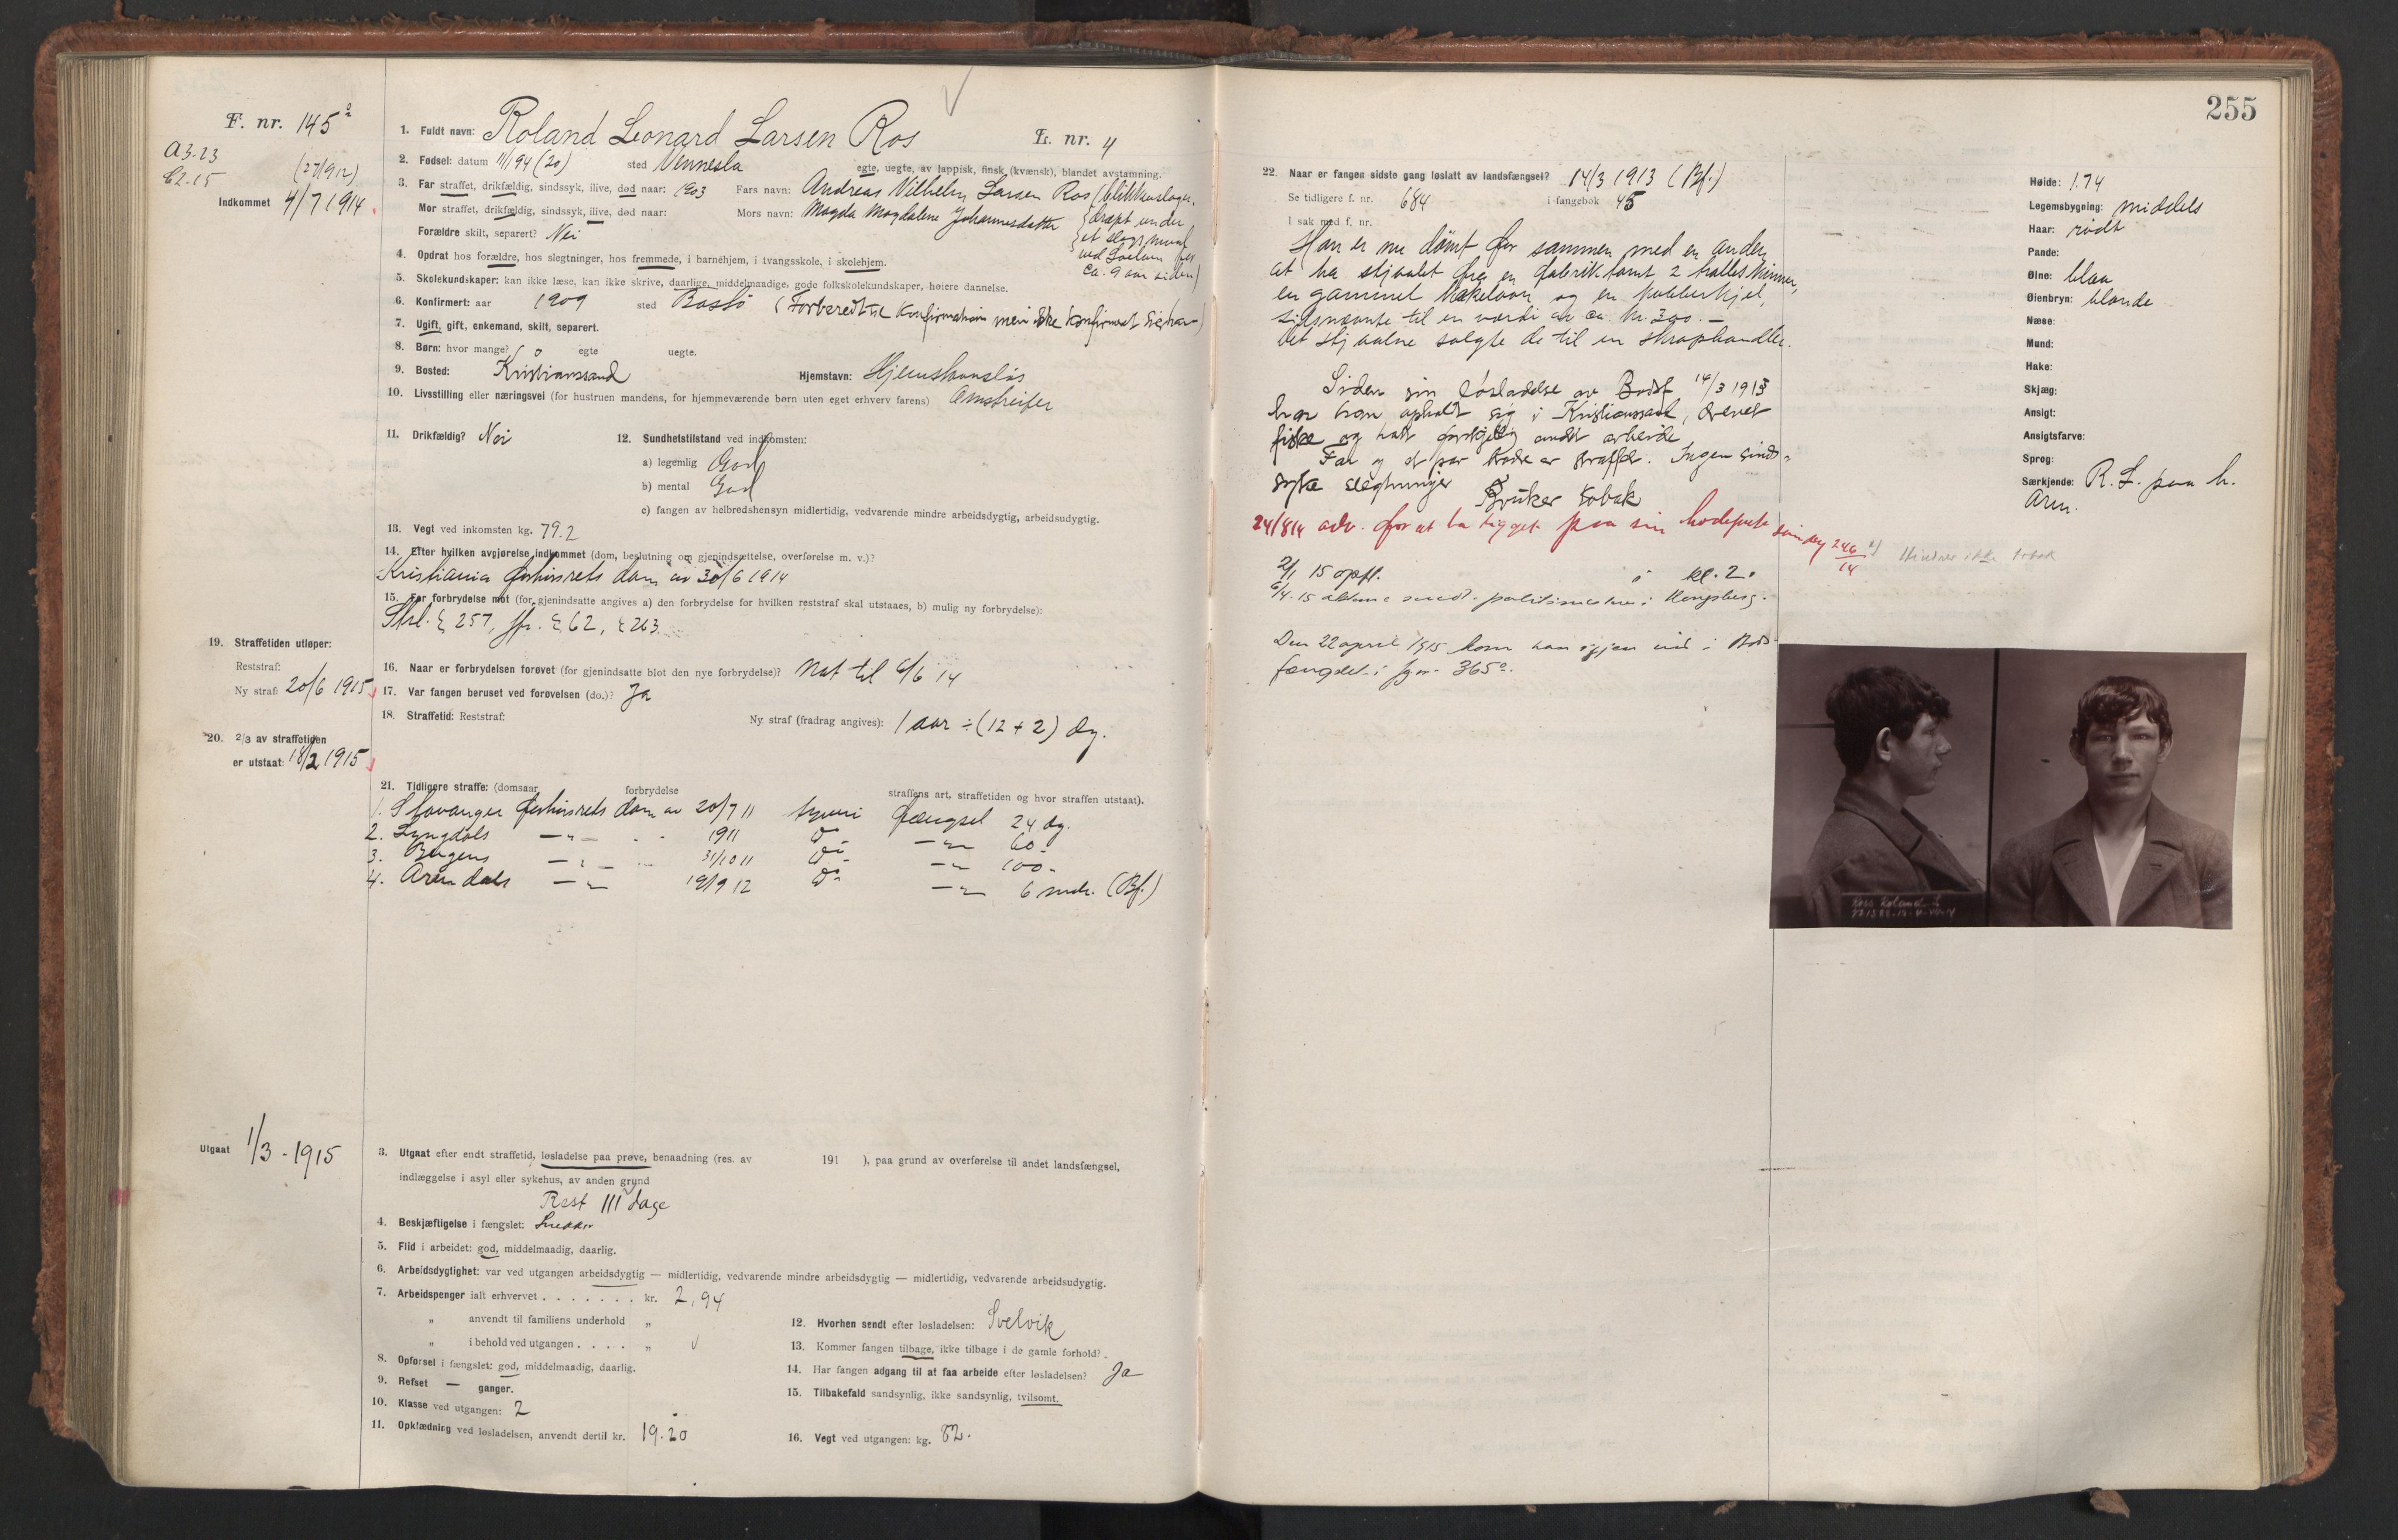 F. nr. 145 a
A3-23
C2-15
(27/912)
Indkommet 4/7 1914
1. Fuldt navn: Roland Leonard Larsen Ros
L. nr. 4
2. Fødsel: datum 11/1 94 (20) sted Vennesla egte, uegte, av lappisk, finsk (kvænsk), blandet avstamning.
3. Far straffet, drikfældig, sindssyk, ilive, død naar: 1903 Fars navn: Andreas Vilhelm Larsen Ros (blikkenslager,
Mor straffet, drikfældig, sindssyk, ilive, død naar: Mors navn: Magda Magdalene Johannesdatter
dræpt under
et slagsmaal
ved
ca. 9 aar siden)
Forældre skilt, separert? Nei
4. Opdrat hos forældre, hos slegtninger, hos fremmede, i barnehjem, i tvangsskole, i skolehjem.
5. Skolekundskaper: kan ikke læse, kan ikke skrive, daarlige, middelmaadige, gode folkskolekundskaper, høiere dannelse.
6. Konfirmert: aar 1909 sted Bastø (Forberedt til konfirmation men ikke konfirmert siger han)
7. Ugift, gift, enkemand, skilt, separert.
8. Børn: hvor mange? 0 egte uegte.
9. Bosted: Kristianssand Hjemstavn: Hjemstavnsløs
10. Livsstilling eller næringsvei (for hustruen mandens, for hjemmeværende børn uten eget erhverv farens) Omstreifer
11. Drikfældig? Nei
12. Sundhetstilstand ved indkomsten:
a) legemlig God
b) mental God
c) fangen av helbredshensyn midlertidig, vedvarende mindre arbeidsdygtig, arbeidsudygtig.
13. Vegt ved inkomsten kg. 79.2
14. Efter hvilken avgjørelse indkommet (dom, beslutning om gjenindsættelse, overførelse m. v.)?
Kristiania forhørsrets dom av 30/6 1914
15. For forbrydelse mot (for gjenindsatte angives a) den forbrydelse for hvilken reststraf skal utstaaes, b) mulig ny forbrydelse):
Strl. § 257, jfr. § 62, § 263.
16. Naar er forbrydelsen forøvet (for gjenindsatte blot den nye forbrydelse)? Nat til 6/6 14
17. Var fangen beruset ved forøvelsen (do.)? Ja
18. Straffetid: Reststraf: Ny straf (fradrag angives): 1 aar ÷ (12 + 2) dg.
19. Straffetiden utløper:
Reststraf:
Ny straf: 20/6 1915
20. 2/3 av straffetiden
er utstaat: 18/2 1915
21. Tidligere straffe: (domsaar forbrydelse straffens art, straffetiden og hvor straffen utstaat).
1. Stavanger forhørsrets dom av 20/7 11 tyveri fængsel 24 dg.
2. Lyngdals —"— 1911 do —"— 60 -
3. Bergens —"— 31/10 11 do —"— 100 -
4. Arendals —"— 19/9 12 do —"— 6 mdr. (Bf.)
Utgaat 1/3 - 1915
3. Utgaat efter endt straffetid, løsladelse paa prøve, benaadning (res. av 191 ), paa grund av overførelse til andet landsfængsel,
indlæggelse i asyl eller sykehus, av anden grund
Rest 111 dage
4. Beskjæftigelse i fængslet: Snekker
5. Flid i arbeidet: god, middelmaadig, daarlig.
6. Arbeidsdygtighet: var ved utgangen arbeidsdygtig — midlertidig, vedvarende mindre arbeidsdygtig — midlertidig, vedvarende arbeidsudygtig.
7. Arbeidspenger ialt erhvervet . . . . . . . kr. 2,94
" anvendt til familiens underhold "
" i behold ved utgangen . . . . "
8. Opførsel i fængslet: god, middelmaadig, daarlig.
9. Refset — ganger.
10. Klasse ved utgangen: 2
11. Opklædning ved løsladelsen, anvendt dertil kr. 19.20
12. Hvorhen sendt efter løsladelsen: Svelvik
13. Kommer fangen tilbage, ikke tilbage i de gamle forhold?
14. Har fangen adgang til at faa arbeide efter løsladelsen? Ja
15. Tilbakefald sandsynlig, ikke sandsynlig, tvilsomt.
16. Vegt ved utgangen: kg. 82.
255
22. Naar er fangen sidste gang løslatt av landsfængsel? 14/3 1913 (Bf.)
Se tidligere f. nr. 684 i fangebok 45
I sak med f. nr.
Han er nu dømt for sammen med en anden
at ha stjaalet fra en fabriktomt 2
en gammel kakelovn og en kobberkjel,
sidstnævnte til en værdi av ca. kr. 300. —
Det stjaalne solgte de til en skraphandler.
Siden sin løsladelse av Bodsf. 14/3 1913
har han opholdt sig i Kristianssand, drevet
fiske og hatt forskjellig andet arbeide
Far og et par brødre er straffet. Ingen sinds-
syke slegtninger Bruker tobak
24/8 14 adv. for at ha ligget paa sin hodepute
2/1 15 opfl. i kl. 2.
6/4 15 aktene sendt politimesteren i Kongsberg.
Den 22 april 1915 kom han igjen ind i Bods-
fængslet i fgnr. 365 a.
Høide: 1.74
Legemsbygning: middels
Haar: rødt
Pande:
Øine: blaa
Øienbryn: blonde
Næse:
Mund:
Hake:
Skjæg:
Ansigt:
Ansigtsfarve:
Sprog:
Særkjende: R. L. paa h.
Arm.